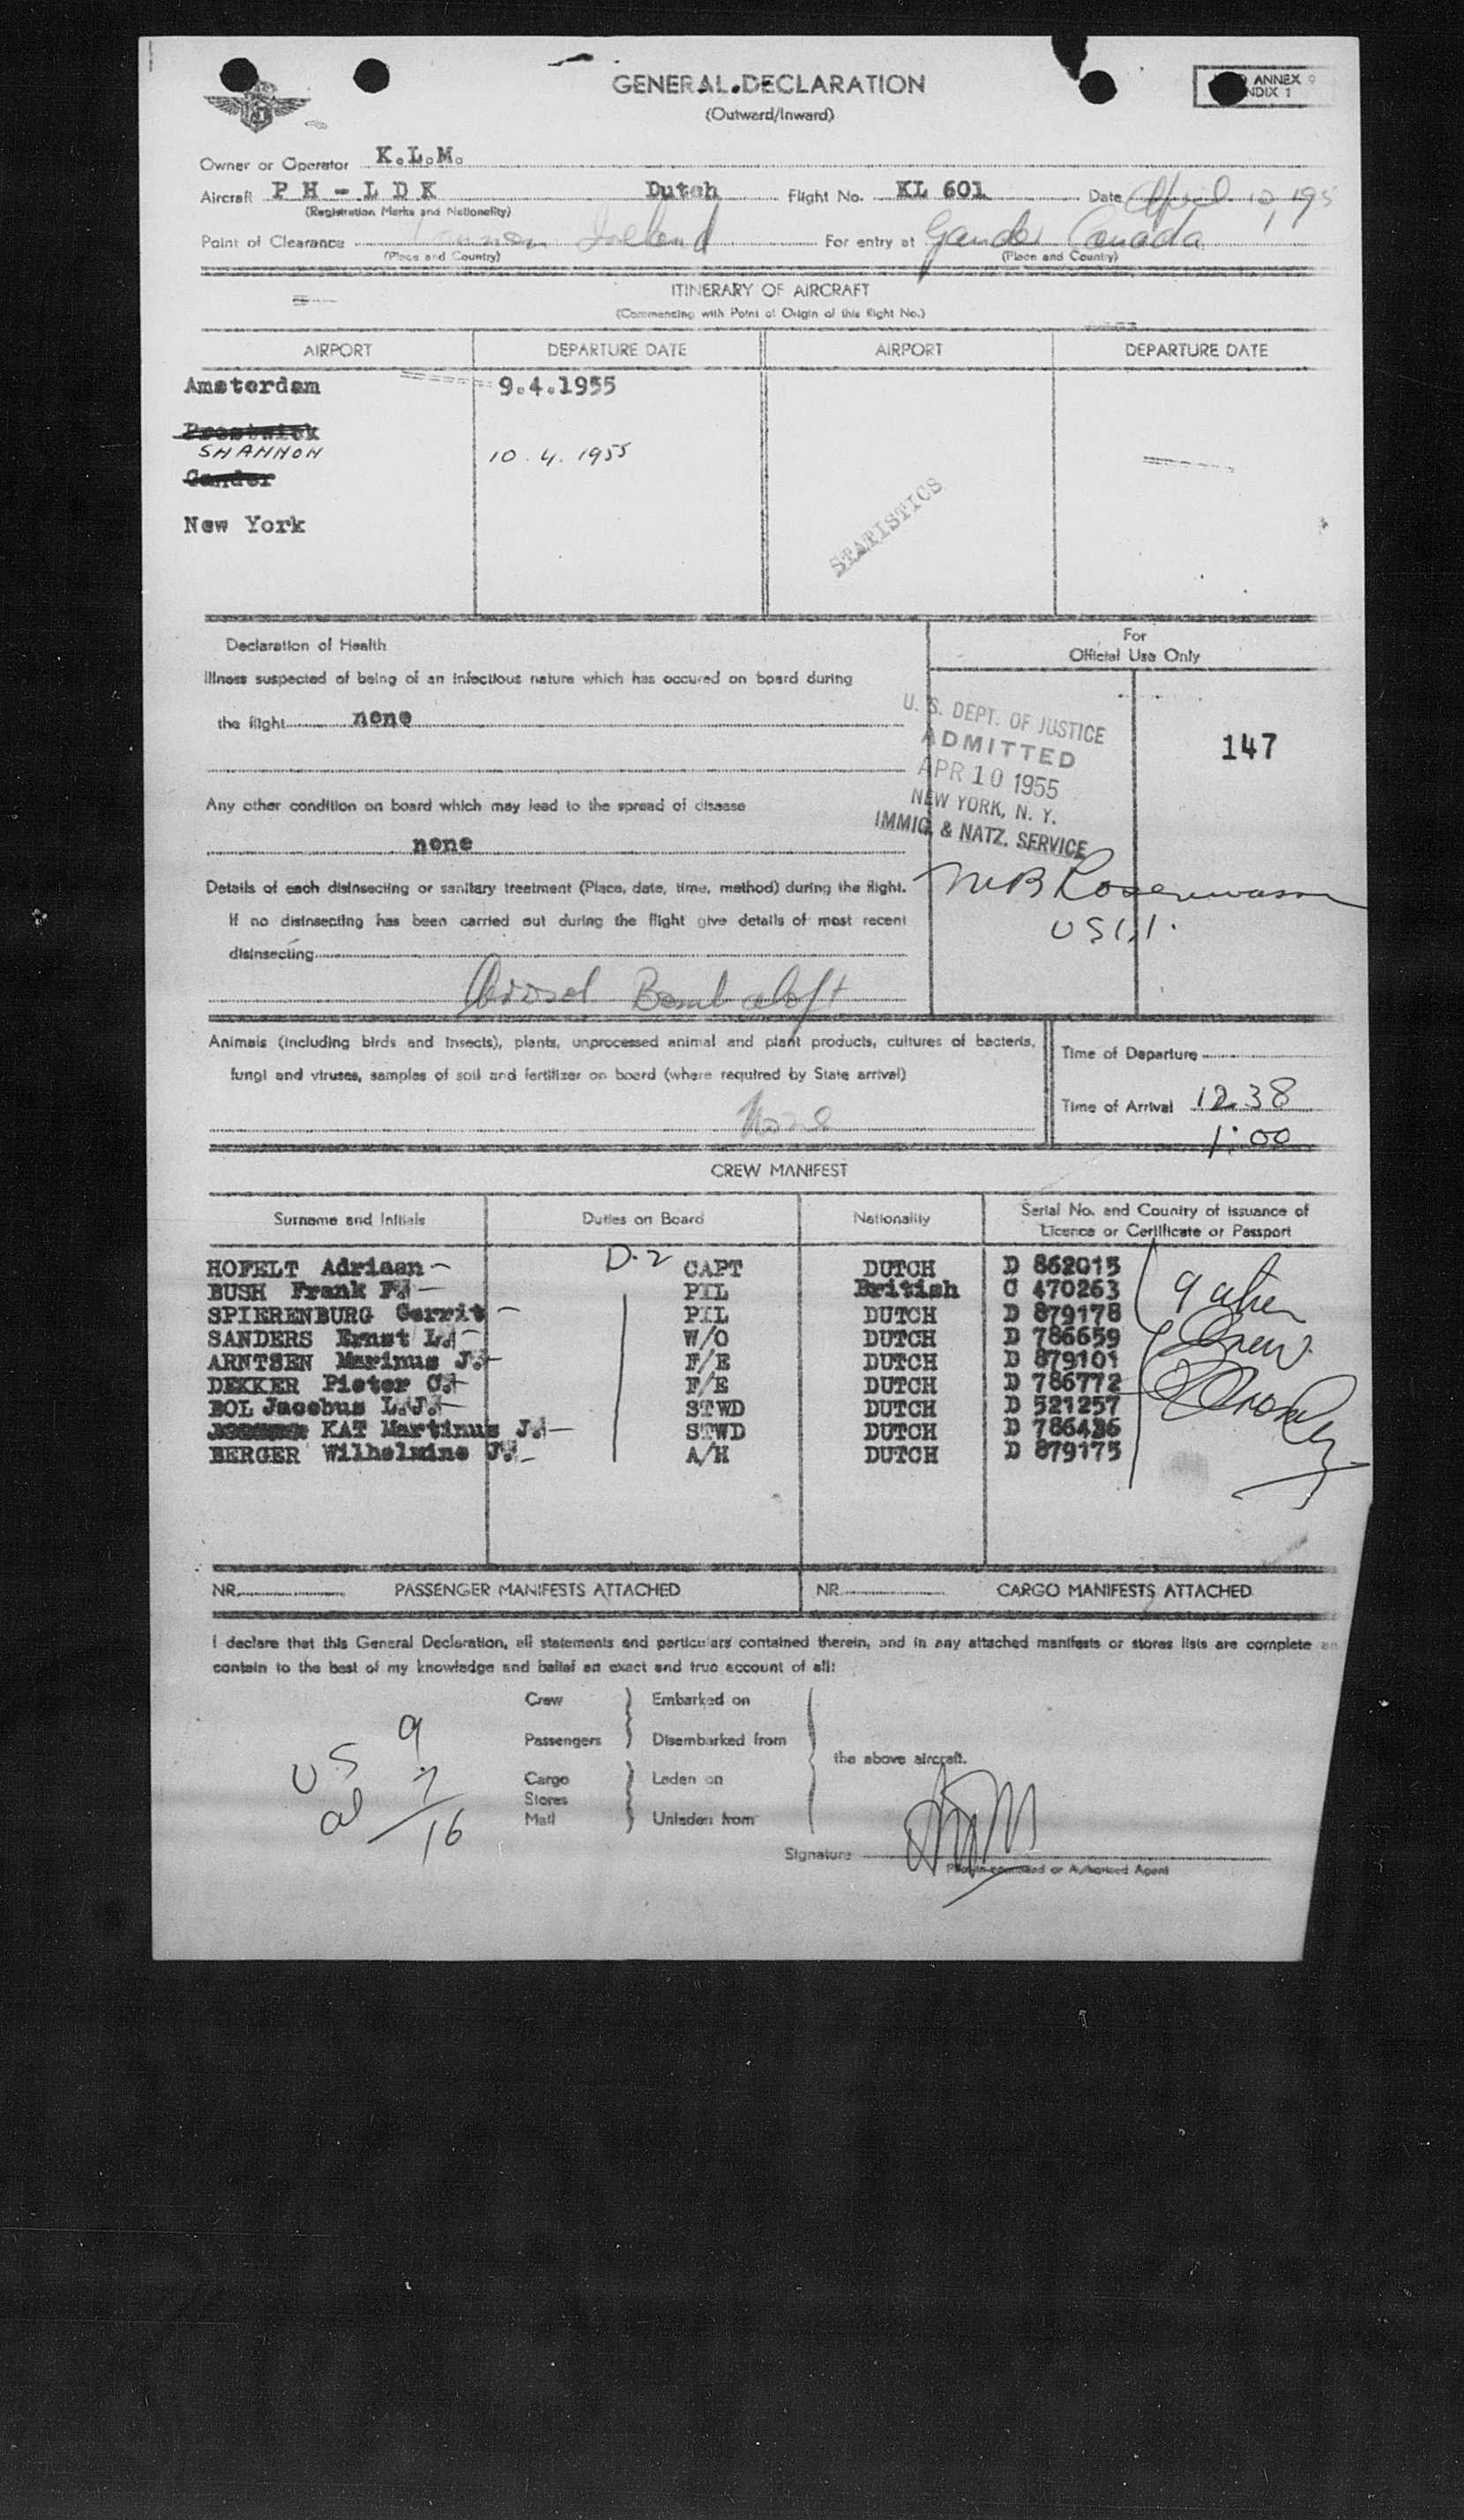 GENERAL DECLARATION
(Outward/Inward)
ANNEX 9
NDIX 1
Owner or Operator K.L.M.
Aircraft P H - L D K Dutch Flight No. KL 601 Date April 10, 195
(Registration Marks and Nationality)
Point of Clearance Ireland For entry at Gander Canada
(Place and Country) (Place and Country)
ITINERARY OF AIRCRAFT
(Commencing with Point of Origin of this flight No.)
AIRPORT DEPARTURE DATE AIRPORT DEPARTURE DATE
Amsterdam 9.4.1955
Prestwick
SHANNON 10.4.1955
Gander
New York
STATISTICS
Declaration of Health
For
Official Use Only
Illness suspected of being of an infectious nature which has occured on board during
the flight none
U. S. DEPT. OF JUSTICE
ADMITTED
APR 10 1955
NEW YORK, N. Y.
IMMIG. & NATZ. SERVICE
147
Any other condition on board which may lead to the spread of disease
none
Details of each disinsecting or sanitary treatment (Place, date, time, method) during the flight.
If no disinsecting has been carried out during the flight give details of most recent
disinsecting
Aerosol Bomb aloft
Animals (including birds and insects), plants, unprocessed animal and plant products, cultures of bacteria,
fungi and viruses, samples of soil and fertilizer on board (where required by State arrival)
None
Time of Departure
Time of Arrival 12.38
1:00
CREW MANIFEST
Surname and Initials Duties on Board Nationality Serial No. and Country of issuance of
Licence or Certificate or Passport
HOFELT Adriaan D-2 CAPT DUTCH D 862015
BUSH Frank F. PIL British C 470263
SPIERENBURG Gerrit PIL DUTCH D 879178
SANDERS Ernst L. W/O DUTCH D 786659
ARNTSEN Marinus J. F/E DUTCH D 879101
DEKKER Pieter C. F/E DUTCH D 786772
BOL Jacobus L.J. STWD DUTCH D 521257
KAT Martinus J. STWD DUTCH D 786436
BERGER Wilhelmina J. A/H DUTCH D 879175
9 alien
Crew
NR. PASSENGER MANIFESTS ATTACHED NR. CARGO MANIFESTS ATTACHED
I declare that this General Declaration, all statements and particulars contained therein, and in any attached manifests or stores lists are complete an
contain to the best of my knowledge and belief an exact and true account of all:
Crew Embarked on
Passengers Disembarked from
the above aircraft.
Cargo Laden on
Stores
Mail Unladen from
US 9
al 7
16
Signature
Pilot-in-command or Authorised Agent